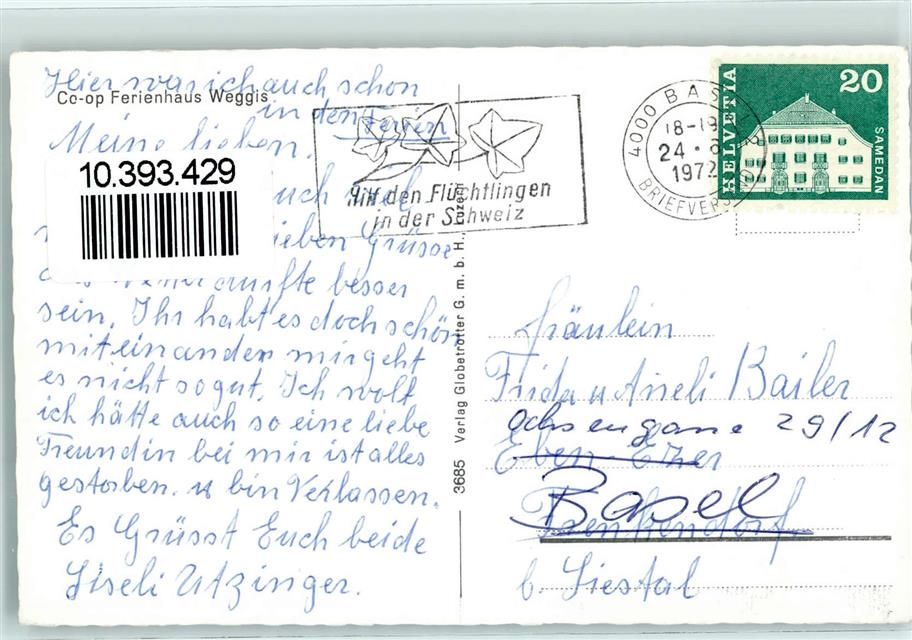 Hier war ich auch schon
Co-op Ferienhaus Weggis
in den Ferien
Meine lieben.
10.393.429
lieben Grüsse
dürfte besser
sein. Ihr habt es doch schön
miteinander mir geht
es nicht so gut. Ich wolt
ich hätte auch so eine liebe
Freundin bei mir ist alles
gestorben. u bin Verlassen.
Es Grüsst Euch beide
Liseli Utzinger.
3685 Verlag Globetrotter G. m. b. H. Luzern
Hilf den Flüchtlingen
in der Schweiz
4000 BASEL 2
18-19
24
1972
BRIEFVERSAND
HELVETIA
20
SAMEDAN
Fräulein
Frida u Aneli Bailer
Ochsengasse 29/12
Eben-Ezer
Basel
Frenkendorf
b. Liestal